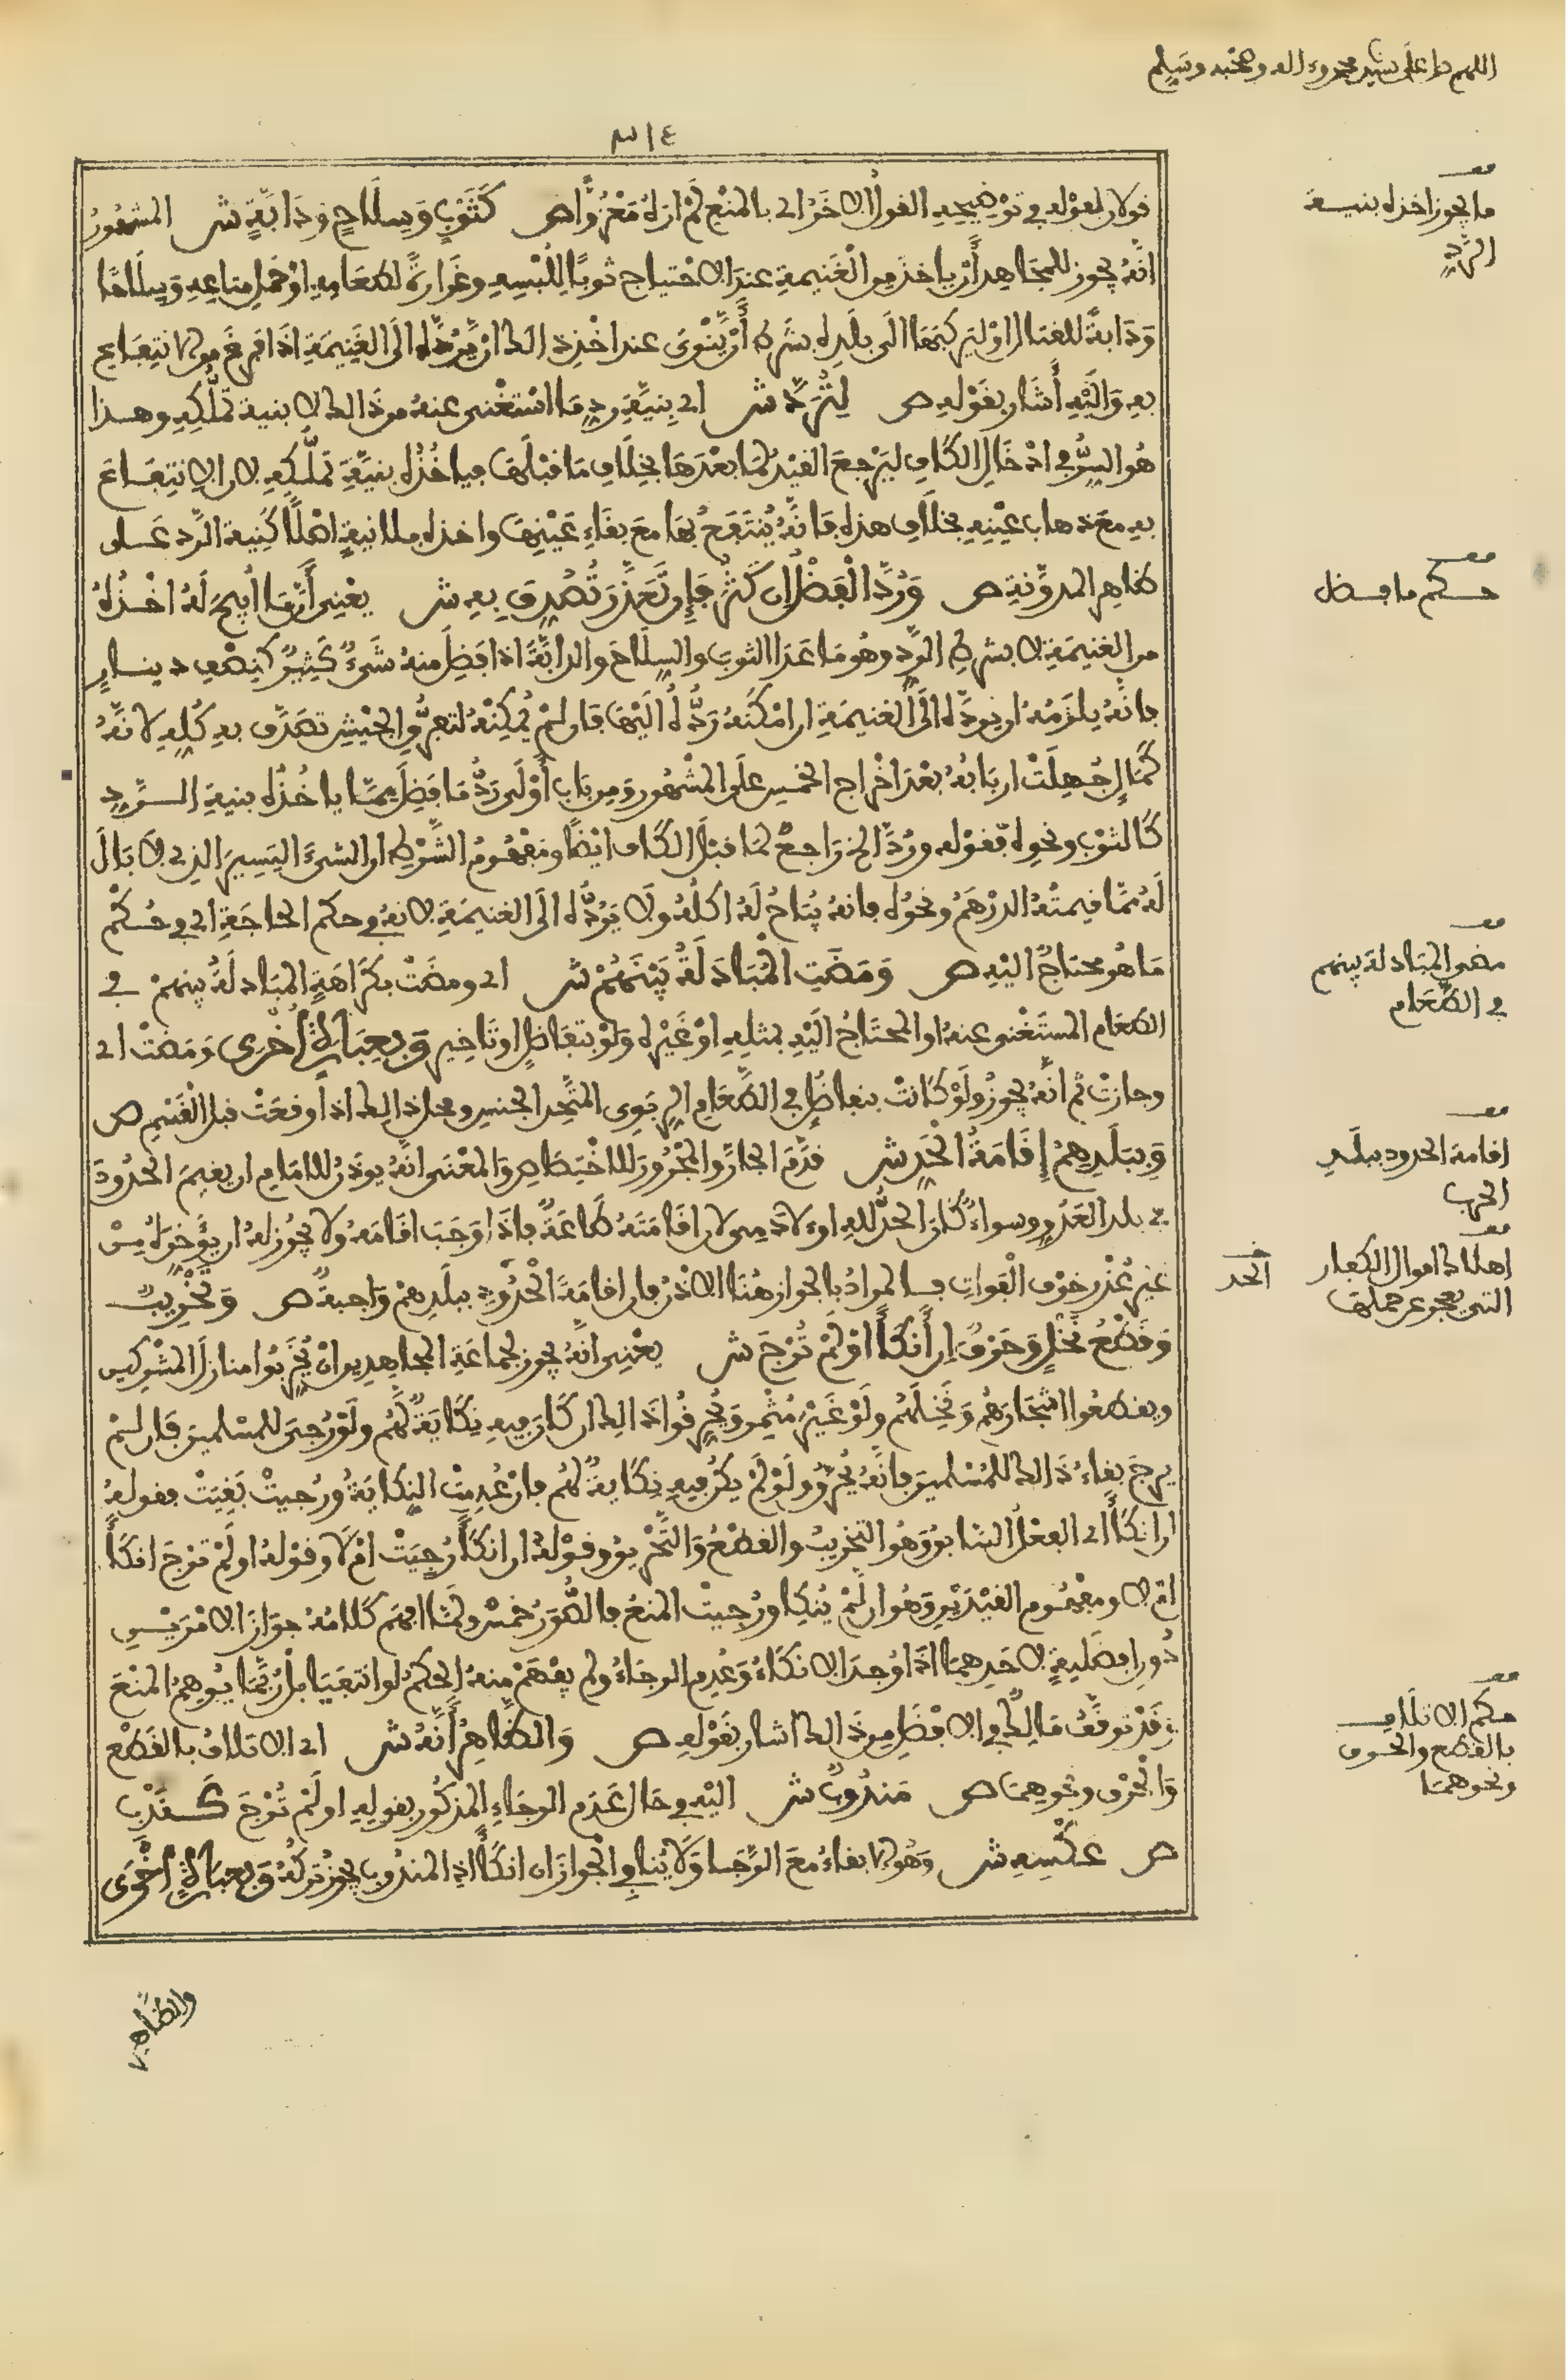 اللهم صل على سيدنا محمد وءاله وصحبه وسلم
قولان لقوله في توضيحه القول الاخر اي بالمنع لم اره معزوا ص كثوب وسلاح ودابة ش المشهور
انه يجوز للمجاهد أن ياخذ من الغنيمة عند الاحتياج ثوبا للبسه وغرارة لطعامه او حمل متاعه وسلاحا
ودابة للقتال او ليركبها الى بلده بشرط أن ينوى عند اخذ ذالك ان يرده الى الغنيمة اذا فرغ من الانتفاع
به واليه أشار بقوله ص ليرد ش اي بنية رد ما استغنى عنه من ذالك لا بنية تملكه وهذا
هو السر في ادخال الكاف ليرجع القيد لما بعدها بخلاف ما قبلها فياخذه بنية تملكه لان الانتفاع
به مع ذهاب عينه بخلاف هذه فانه ينتفع بها مع بقاء عينها واخذه بلا نية اصلا كنية الرد على
ظاهر المدونة ص ورد الفضل ان كثر فإن تعذر تصدق به ش يعني أن ما ابيح له اخذه
من الغنيمة لا بشرط الرد وهو ما عدا الثوب والسلاح والدابة اذا فضل منه شيء كثير كنصف دينار
فانه يلزمه ان يرده الى الغنيمة ان امكنه رده اليها فان لم يمكنه لتفرق الجيش تصدق به كله لانه
كمال جهلت اربابه بعد اخراج الخمس على المشهور ومن باب أولى رد ما فضل مما ياخذه بنية الرد
كالثوب ونحوه فقوله ورد الخ راجع لما قبل الكاف ايضا ومفهوم الشرط ان الشيء اليسير الذي لا بال
له مما قيمته الدرهم ونحوه فانه يباح له اكله ولا يرده الى الغنيمة لانه في حكم الحاجة اي في حكم
ما هو محتاج اليه ص ومضت المبادلة بينهم ش اي ومضت بكراهة المبادلة بينهم في
الطعام المستغنى عنه او المحتاج اليه بمثله او غيره ولو بتفاضل او تاخير وبعبارة أخرى ومضت اي
وجازت ثم انه يجوز ولو كانت بتفاضل في الطعام الربوى المتحد الجنس ومحل ذالك اذا وقعت قبل القسم ص
وببلدهم إقامة الحد ش قدم الجار والمجرور للاختصاص والمعنى انه يوذن للامام ان يقيم الحدود
في بلد العدو وسواء كان الحد لله او لادمي لان اقامته طاعة فاذا وجب اقامه ولا يجوز له ان يؤخره من
غير عذر خوف الفوات فالمراد بالجواز هنا الاذن فان اقامة الحدود ببلدهم واجبة ص وتخريب
وقطع نخل وحرق إن أنكأ او لم ترج ش يعني انه يجوز لجماعة المجاهدين ان يخربوا منازل المشركين
ويقطعوا اشجارهم ونخلهم ولو غير مثمر ويحرقوا ذالك ان كان فيه نكاية لهم ولو رجى للمسلمين فان لم
يرج بقاء ذالك للمسلمين فانه يحرق ولو لم يكن فيه نكاية لهم فان عدمت النكاية ورجيت بقيت فقوله
ان انكأ اي الفعل السابق وهو التخريب والقطع والتحريق وقوله ان انكأ رجيت ام لا وقوله او لم ترج انكأ
ام لا ومفهوم القيدين وهو ان لم ينك ورجيت المنع فالصور خمس ولما ابهم كلامه جواز الامرين
دون افضلية لاحدهما اذا وجد الانكاء وعدم الرجاء ولم يفهم منه الحكم لو انتفيا بل ربما يوهم المنع
وقد توقف مالك في الافضل من ذالك اشار بقوله ص والظاهر أنه ش اي الاتلاف بالقطع
والحرق ونحوهما ص مندوب ش اليه في حال عدم الرجاء المذكور بقوله او لم ترج كندب
ص عكسه ش وهو الابقاء مع الرجا ولا ينافي الجواز ان انكأ اذ المندوب يجوز تركه وبعبارة أخرى
والظاهر
ما يجوز اخذه بنية
الرد
حكم ما فضل
مضي المبادلة بينهم
في الطعام
اقامة الحدود ببلد
الحرب
اهلاك اموال الكفار
التي يعجز عن حملها
الحد
حكم الاتلاف
بالقطع والحرق
ونحوهما